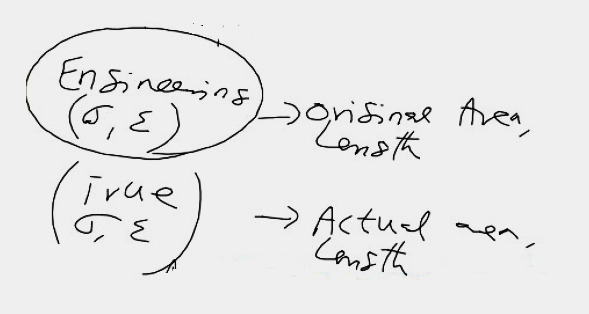 Engineering
(σ, ε) → Original Area,
Length
(True
σ, ε) → Actual area,
Length